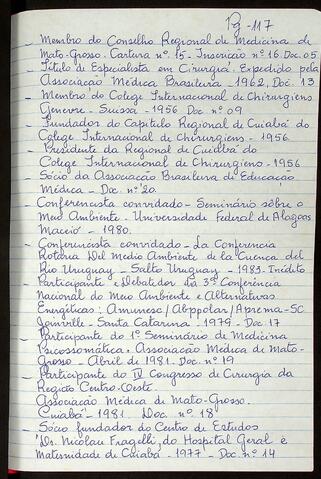 Pg - 117
- Membro do Conselho Regional de Medicina de
Mato-Grosso. Carteira nº 15 - Inscrição nº 16. Doc. 05
- Título de Especialista em Cirurgia. Expedido pela
Associação Médica Brasileira - 1962. Doc. 13
- Membro do Colege Internacional de Chirurgiens
Geneve - Suissa - 1956 Doc nº 09
- Fundador do Capítulo Regional de Cuiabá do
Colege Internacional de Chirurgiens - 1956.
- Presidente da Regional de Cuiabá do
Colege Internacional de Chirurgiens - 1956
- Sócio da Associação Brasileira de Educação
Médica - Doc. nº 20.
- Conferencista convidado - Seminário sôbre o
Meio Ambiente. Universidade Federal de Alagoas
Maceió - 1980.
- Conferencista convidado - La Conferencia
Rotaria del Medio Ambiente de la Cuenca del
Rio Uruguay - Salto Uruguay - 1983. Inédito
- Participante e Debatedor da 3ª Conferência
Nacional do Meio Ambiente e Alternativas
Energéticas: Amunesc/Abppolar/Aprema-SC
Joinville - Santa Catarina - 1979 - Doc. 17
- Participante do 1º Seminário de Medicina
Psicossomática. Associação Médica de Mato-
Grosso - Abril de 1981. Doc. nº 19
- Participante do IV Congresso de Cirurgia da
Região Centro-Oeste.
Associação Médica de Mato-Grosso.
Cuiabá - 1981. Doc. nº 18
- Sócio fundador do Centro de Estudos
"Dr. Nicolau Fragelli, do Hospital Geral e
Maternidade de Cuiabá - 1977 - Doc. nº 14